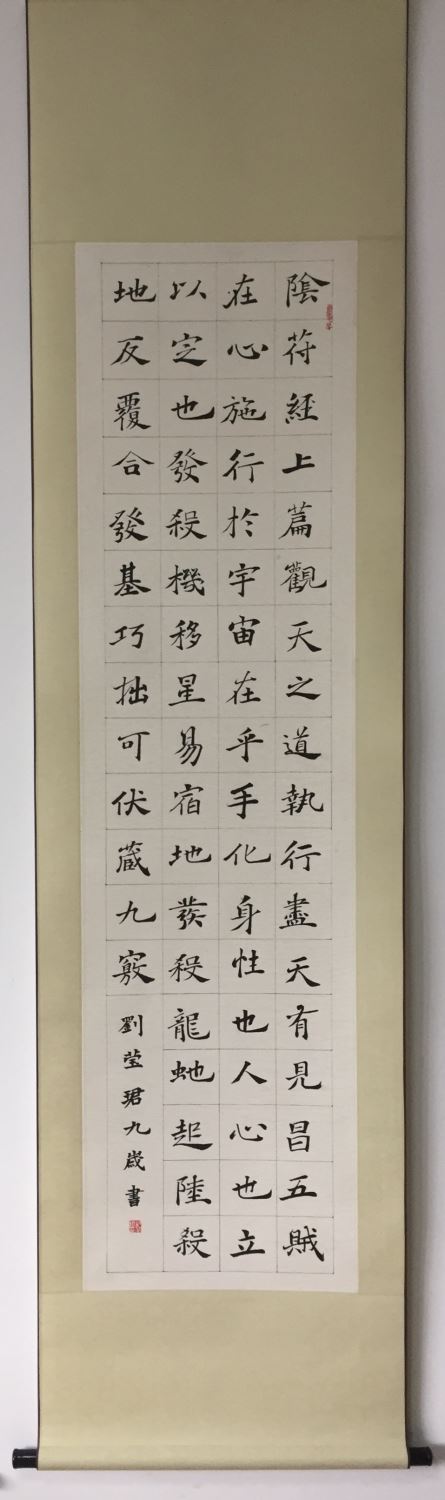 陰苻經上篇觀天之道執行盡天有見昌五賊
在心施行於宇宙在乎手化身性也人心也立
以定也發殺機移星易宿地發殺龍虵起陸殺
地反覆合發基巧拙可伏藏九竅
劉莹珺九歲書